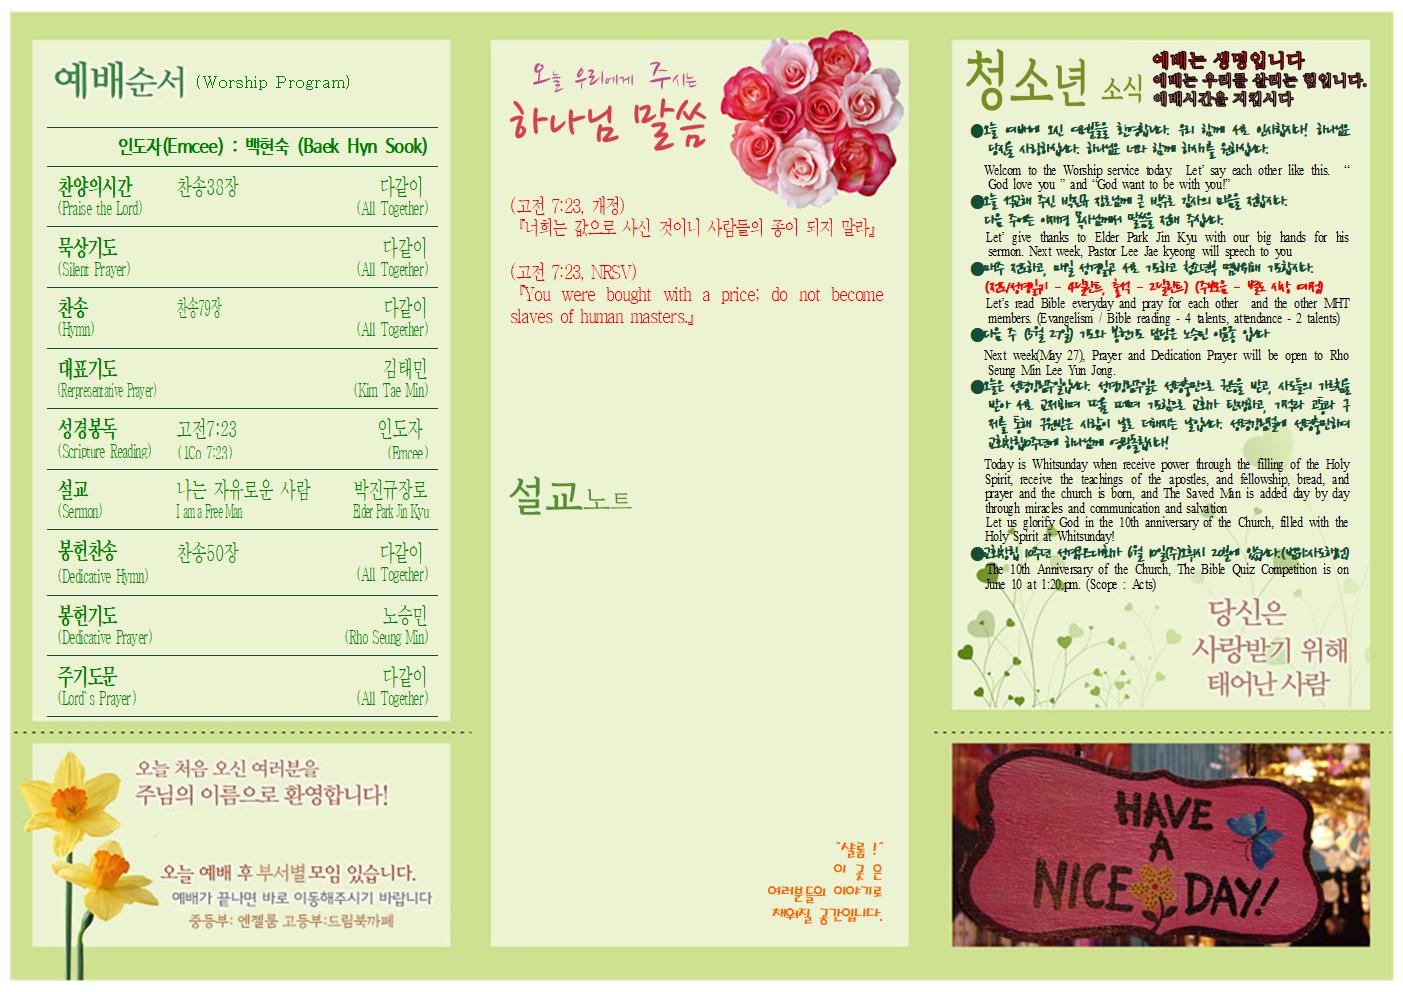 예배순서 (Worship Program)
인도자(Emcee) : 백현숙 (Baek Hyn Sook)
찬양의시간 찬송38장 다같이
(Praise the Lord) (All Together)
묵상기도 다같이
(Silent Prayer) (All Together)
찬송 찬송79장 다같이
(Hymn) (All Together)
대표기도 김태민
(Rerpresentative Prayer) (Kim Tae Min)
성경봉독 고전7:23 인도자
(Scripture Reading) (1Co 7:23) (Emcee)
설교 나는 자유로운 사람 박진규장로
(Sermon) I am a Free Man Elder Park Jin Kyu
봉헌찬송 찬송50장 다같이
(Dedicative Hymn) (All Together)
봉헌기도 노승민
(Dedicative Prayer) (Rho Seung Min)
주기도문 다같이
(Lord`s Prayer) (All Together)
오늘 처음 오신 여러분을
주님의 이름으로 환영합니다!
오늘 예배 후 부서별 모임 있습니다.
예배가 끝나면 바로 이동해주시기 바랍니다
중등부: 엔젤룸 고등부:드림북까페
오늘 우리에게 주시는
하나님 말씀
(고전 7:23, 개정)
『너희는 값으로 사신 것이니 사람들의 종이 되지 말라』
(고전 7:23, NRSV)
『You were bought with a price; do not become
slaves of human masters.』
설교노트
"샬롬 !"
이 곳 은
여러분들의 이야기로
채워질 공간입니다.
청소년 소식
예배는 생명입니다
예배는 우리를 살리는 힘입니다.
예배시간을 지킵시다
●오늘 예배에 오신 여러분들을 환영합니다. 우리 함께 서로 인사합시다! 하나님은
당신을 사랑하십니다. 하나님은 너와 함께 하시기를 원하십니다.
Welcom to the Worship service today. Let' say each other like this. “
God love you ” and “God want to be with you!”
●오늘 설교해 주신 박진규 장로님께 큰 박수로 감사의 마음을 전합시다.
다음 주에는 이재경 목사님께서 말씀을 전해 주십니다.
Let' give thanks to Elder Park Jin Kyu with our big hands for his
sermon. Next week, Pastor Lee Jae kyeong will speech to you
●매주 전도하고, 매일 성경읽고 서로 기도하고 청소년부 멤버위해 기도합시다.
(전도/성경읽기 - 4달란트, 출석 - 2달란트) (주번호응 - 별도 시상 예정)
Let's read Bible everyday and pray for each other and the other MHT
members. (Evangelism / Bible reading - 4 talents, attendance - 2 talents)
●다음 주 (5월 27일) 기도와 봉헌기도 담당은 노승민 이윤종 입니다
Next week(May 27), Prayer and Dedication Prayer will be open to Rho
Seung Min Lee Yun Jong.
●오늘은 성령강림주일입니다. 성령강림주일은 성령충만으로 권능을 받고, 사도들의 가르침을
받아 서로 교제하며 떡을 떼며 기도함으로 교회가 탄생하고, 기적과 교통과 구
제를 통해 구원받은 사람이 날로 더해지는 날입니다. 성령강림절에 성령충만하여
교회창립10주년에 하나님께 영광돌립시다!
Today is Whitsunday when receive power through the filling of the Holy
Spirit, receive the teachings of the apostles, and fellowship, bread, and
prayer and the church is born, and The Saved Man is added day by day
through miracles and communication and salvation
Let us glorify God in the 10th anniversary of the Church, filled with the
Holy Spirit at Whitsunday!
●교회창립 10주년 성경퀴즈대회가 6월 10일(주)1시 20분에 있습니다.(범위:사도행전)
The 10th Anniversary of the Church, The Bible Quiz Competition is on
June 10 at 1:20.pm. (Scope : Acts)
당신은
사랑받기 위해
태어난 사람
HAVE
A
NICE DAY!